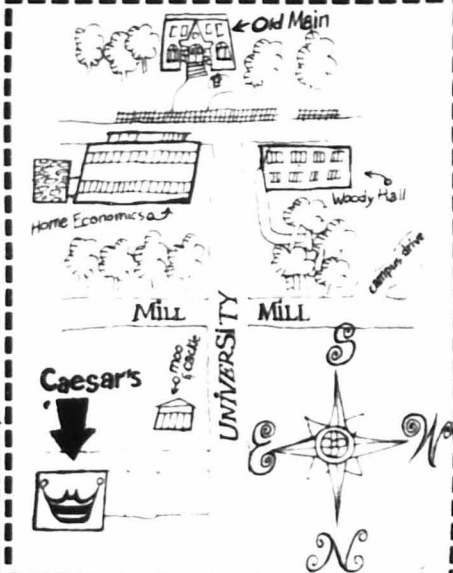 Old Main
Home Economics
Woody Hall
campus drive
MiLL
MiLL
UNIVERSITY
Caesar's
moo
& cackle
S
E
W
N